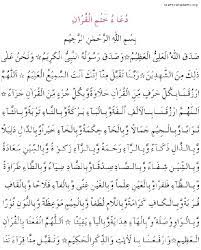 دُعَآءُ خَتْمِ الْقُرْاٰنِ
بِسْمِ اللّٰهِ الرَّحْمٰنِ الرَّحِيْمِ
صَدَقَ اللّٰهُ الْعَلِيُّ الْعَظِيْمُ ☆ وَصَدَقَ رَسُوْلُهُ النَّبِيُّ الْكَرِيْمُ ☆ وَنَحْنُ عَلٰى
ذٰلِكَ مِنَ الشّٰهِدِيْنَ ☆ رَبَّنَا تَقَبَّلْ مِنَّا اِنَّكَ اَنْتَ السَّمِيْعُ الْعَلِيْمُ ☆ اَللّٰهُمَّ
ارْزُقْنَا بِكُلِّ حَرْفٍ مِّنَ الْقُرْاٰنِ حَلَاوَةً وَّبِكُلِّ جُزْءٍ مِّنَ الْقُرْاٰنِ جَزَآءً ☆
اَللّٰهُمَّ ارْزُقْنَا بِالْاَلِفِ اُلْفَةً وَّبِالْبَآءِ بَرَكَةً وَّبِالتَّآءِ تَوْبَةً وَّبِالثَّآءِ
ثَوَابًا وَّبِالْجِيْمِ جَمَالًا وَّبِالْحَآءِ حِكْمَةً وَّبِالْخَآءِ خَيْرًا وَّبِالدَّالِ دَلِيْلًا
وَّبِالذَّالِ ذَكَآءً وَّبِالرَّآءِ رَحْمَةً وَّبِالزَّآءِ زَكٰوةً وَّبِالسِّيْنِ سَعَادَةً
وَّبِالشِّيْنِ شِفَآءً وَّبِالصَّادِ صِدْقًا وَّبِالضَّادِ ضِيَآءً وَّبِالطَّآءِ طَرَاوَةً
وَّبِالظَّآءِ ظَفْرًا وَّبِالْعَيْنِ عِلْمًا وَّبِالْغَيْنِ غِنًى وَّبِالْفَآءِ فَلَاحًا وَّبِالْقَافِ
قُرْبَةً وَّبِالْكَافِ كَرَامَةً وَّبِاللَّامِ لُطْفًا وَّبِالْمِيْمِ مَوْعِظَةً وَّبِالنُّوْنِ نُوْرًا
وَّبِالْوَاوِ وُصْلَةً وَّبِالْهَآءِ هِدَايَةً وَّبِالْيَآءِ يَقِيْنًا ☆ اَللّٰهُمَّ انْفَعْنَا بِالْقُرْاٰنِ
الْعَظِيْمِ ☆ وَارْفَعْنَا بِالْاٰيَاتِ وَالذِّكْرِ الْحَكِيْمِ ☆